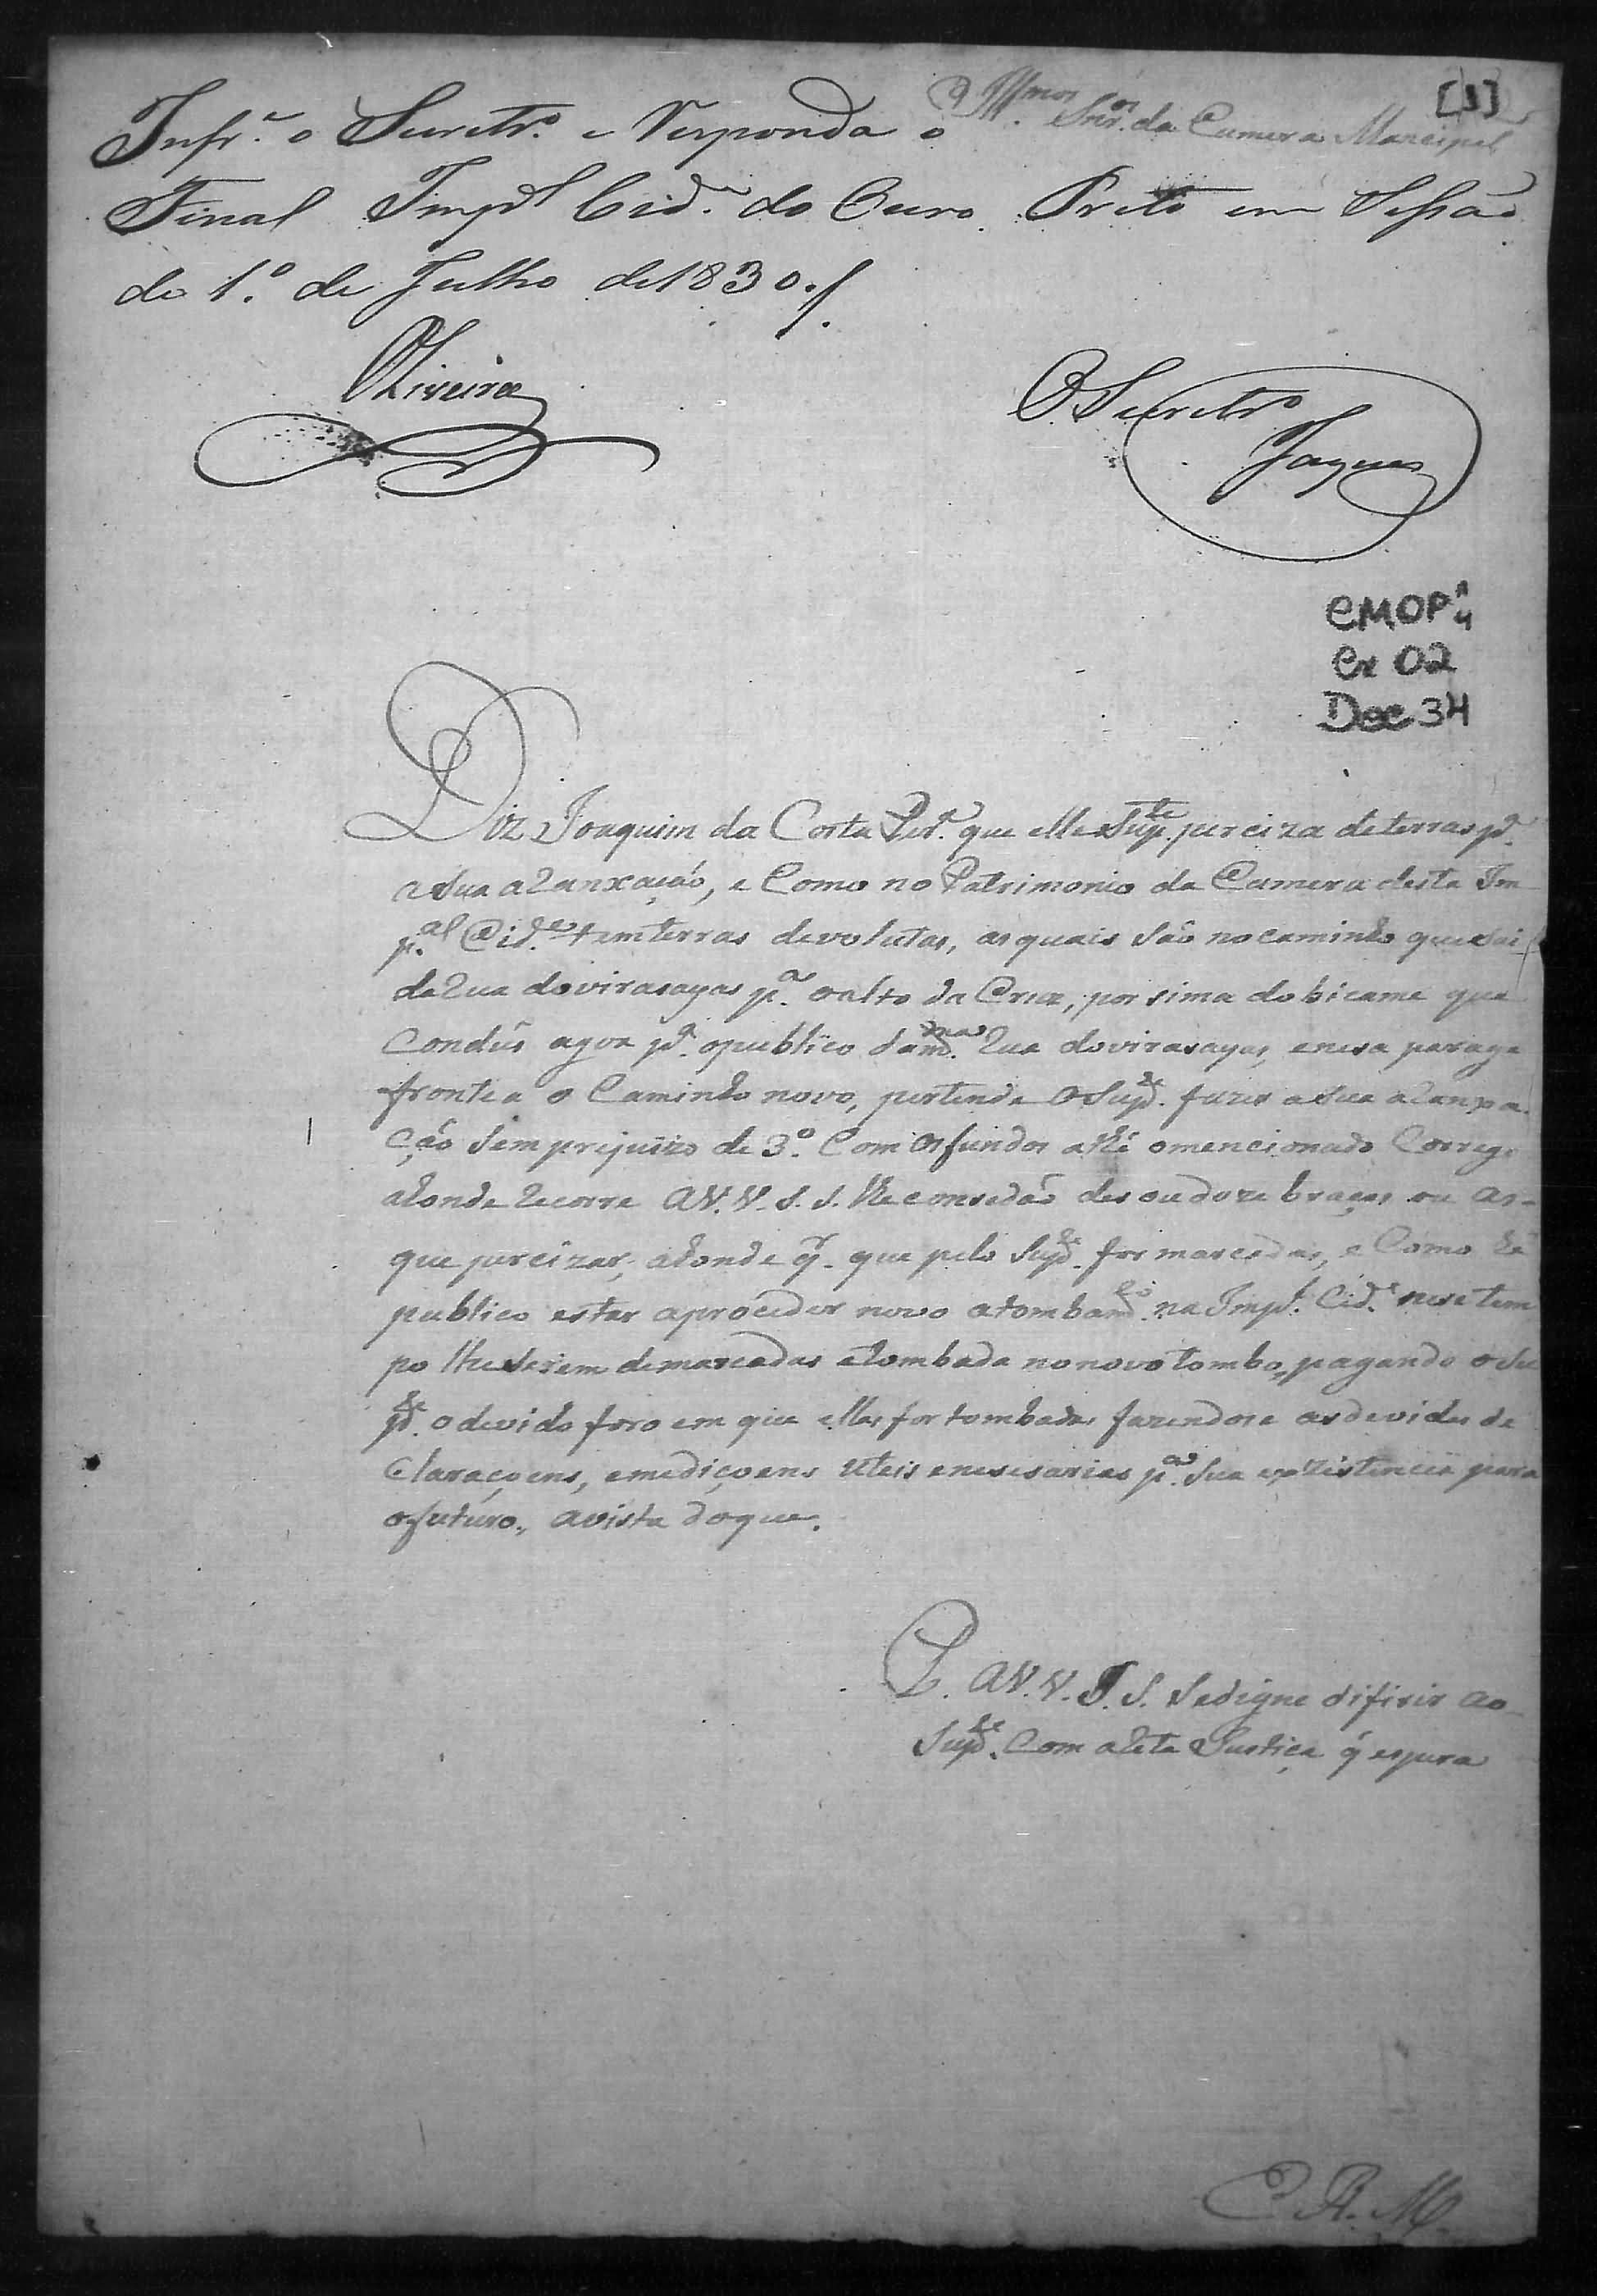 [1]
Illmos. Snrs. da Camera Muncipal
Infre. o Secretro. e Responda o
Fiscal Impl Cide. do Ouro Preto em Sessão
de 1.º de Julho de 1830./
Oliveira
O Secretro
Jaques
CMOP 1/4
Cx 02
Doc 34
Diz Joaquim da Costa Per.ª que elle Supte. perciza de terras pª.
a sua aRanxação, e Como no Patrimonio da Camera desta Im
p.al Cid.e tem terras devolutas, as quais são no caminho que sai
da Rua do virasayas p.a o alto da Cruz, por sima do bicame que
Condûs agoa pª. o publico da m.ma Rua do virasayas, e nesa parage
frontea o Caminho novo, pertende o Sup.te fazer a sua aRanxa
ção sem prejuizo de 3.º Com os fundos athé o mencionado Corrego
ahonde Recorre a V. V. S. S. lhe consedão des ou doze braças ou as
que percizar, ahonde q.r que pelo Sup.te for marcadas, e Como hé
publico estar a proceder novo atombam.to na Imp.l Cid.e nese tem
po lhe serem demarcadas e tombada no novo tombo, pagando o Su
p.te o devido foro em que ellas for tombadas fazendose as devidas de
Claraçoens, e medições uteis e nesesarias p.a sua exzistencia para
o futuro, a vista do que.
P. a V. V. S. S. se digne difirir ao
Sup.te Com a Reta Justiça q̃ espera
E. R. M.